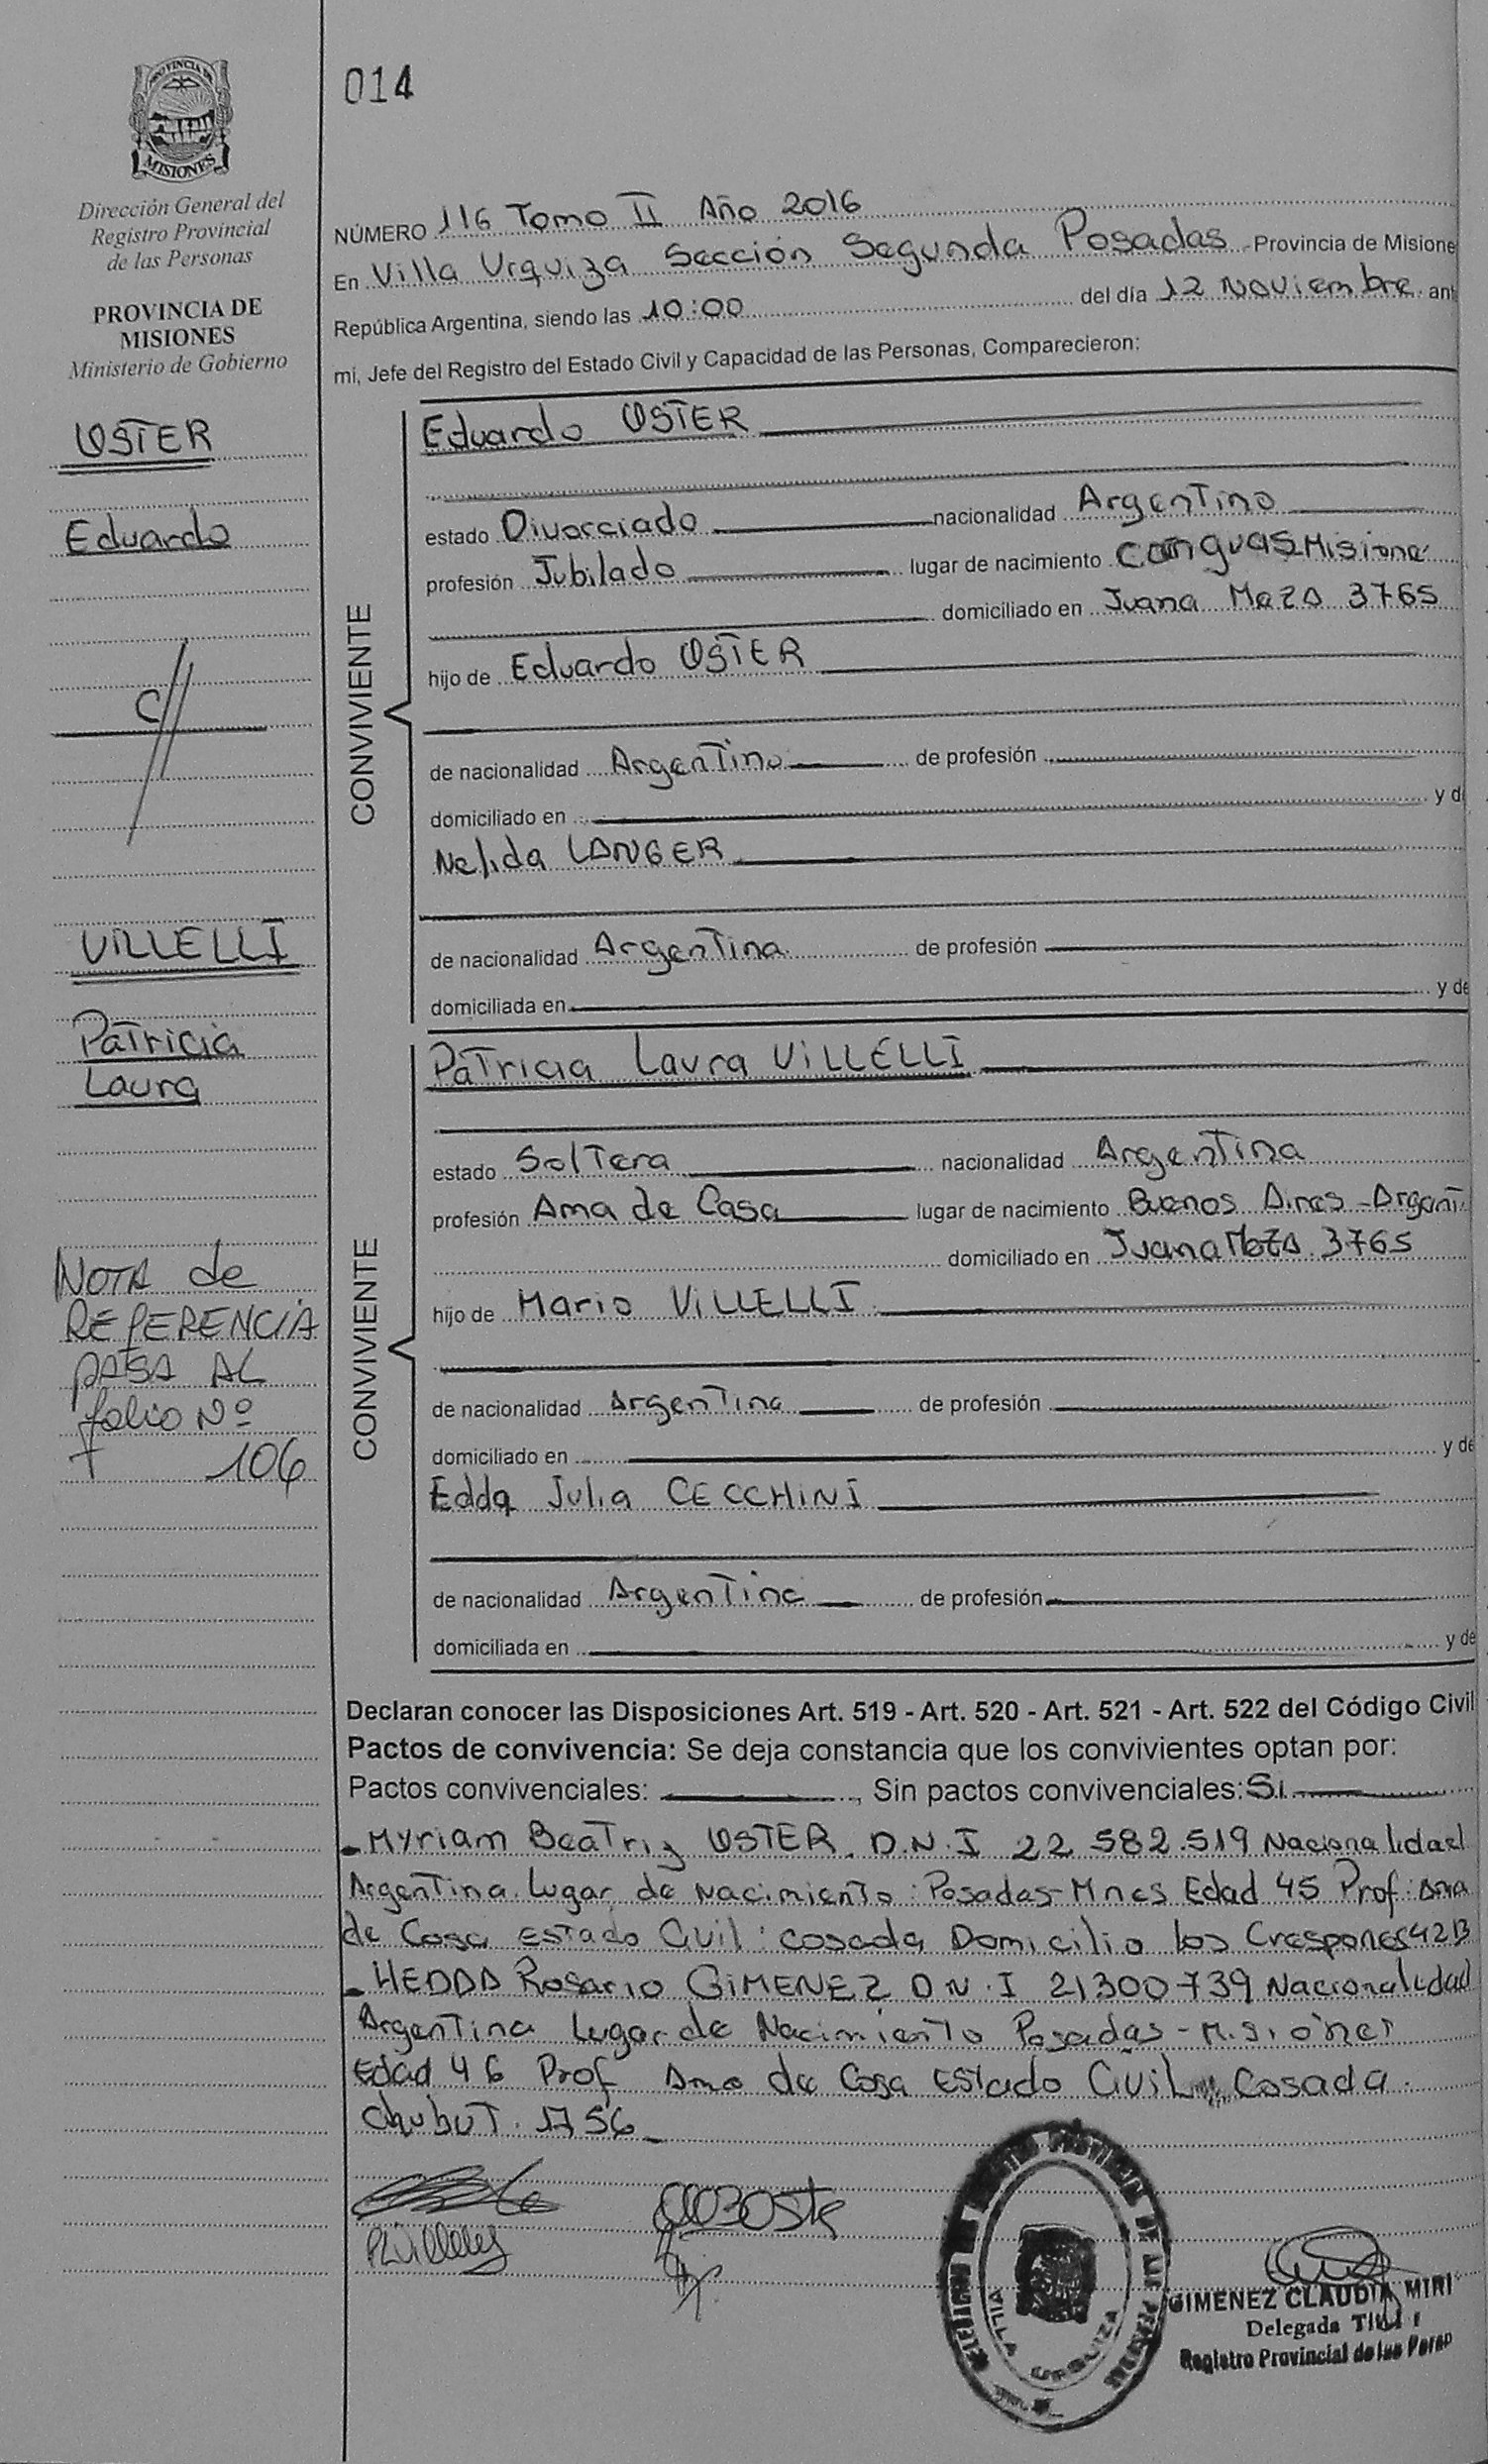 PROVINCIA DE
MISIONES
Dirección General del
Registro Provincial
de las Personas
PROVINCIA DE
MISIONES
Ministerio de Gobierno
OSTER
Eduardo
c//
VILLELLI
Patricia
Laura
NOTA de
REFERENCIA
PASA AL
folio Nº
106
014
NÚMERO 116 Tomo II Año 2016
En Villa Urquiza Sección Segunda Posadas Provincia de Misione
República Argentina, siendo las 10:00 del día 12 Noviembre ant
mi, Jefe del Registro del Estado Civil y Capacidad de las Personas, Comparecieron:
CONVIVIENTE
Eduardo OSTER
estado Divorciado nacionalidad Argentino
profesión Jubilado lugar de nacimiento Misione
domiciliado en Juana Mazo 3765
hijo de Eduardo OSTER
de nacionalidad Argentino de profesión
domiciliado en y d
Nelida LANGER
de nacionalidad Argentina de profesión
domiciliada en y de
CONVIVIENTE
Patricia Laura VILLELLI
estado Soltera nacionalidad Argentina
profesión Ama de Casa lugar de nacimiento Buenos Aires - Argent
domiciliado en Juana Mazo 3765
hijo de Mario VILLELLI
de nacionalidad Argentina de profesión
domiciliado en y de
Edda Julia CECCHINI
de nacionalidad Argentina de profesión
domiciliada en y de
Declaran conocer las Disposiciones Art. 519 - Art. 520 - Art. 521 - Art. 522 del Código Civil
Pactos de convivencia: Se deja constancia que los convivientes optan por:
Pactos convivenciales: , Sin pactos convivenciales: Si
- Myriam Beatriz OSTER. D.N.I 22 582.519 Nacionalidad
Argentina Lugar de Nacimiento: Posadas-Mnes Edad 45 Prof: Ama
de Casa Estado Civil: casada Domicilio los Crespones
- HEDDA Rosario GIMENEZ D.N.I 21300739 Nacionalidad
Argentina Lugar de Nacimiento Posadas - Misiones
Edad 46 Prof Ama de Casa Estado Civil Casada.
Chubut. 1756
VILLA URQUIZA
GIMENEZ CLAUDIA MIRI
Delegada
Registro Provincial de las Perso